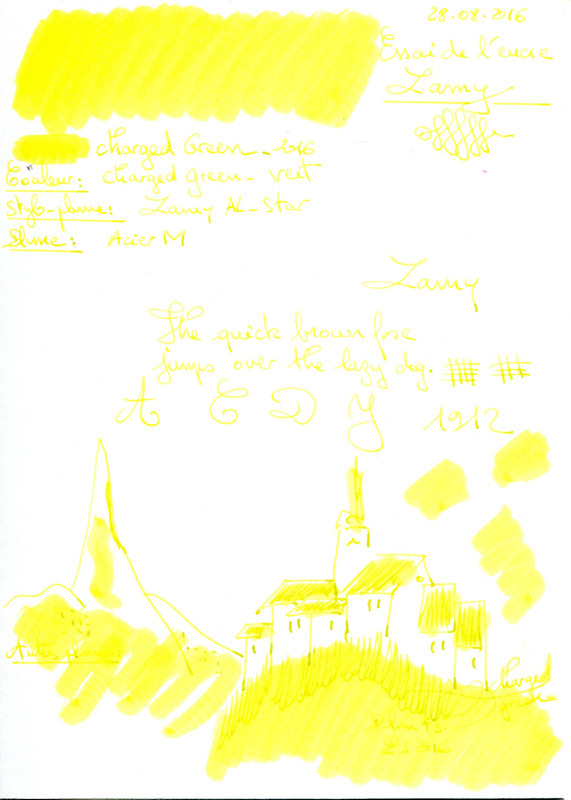 28.08.2016
Essai de l'encre
Lamy
Charged Green - 2016
Couleur: Charged green - vert
Stylo-plume: Lamy AL-Star
Plume: Acier M
Lamy
The quick brown fox
jumps over the lazy dog.
A C D Y 1912
Charged
green